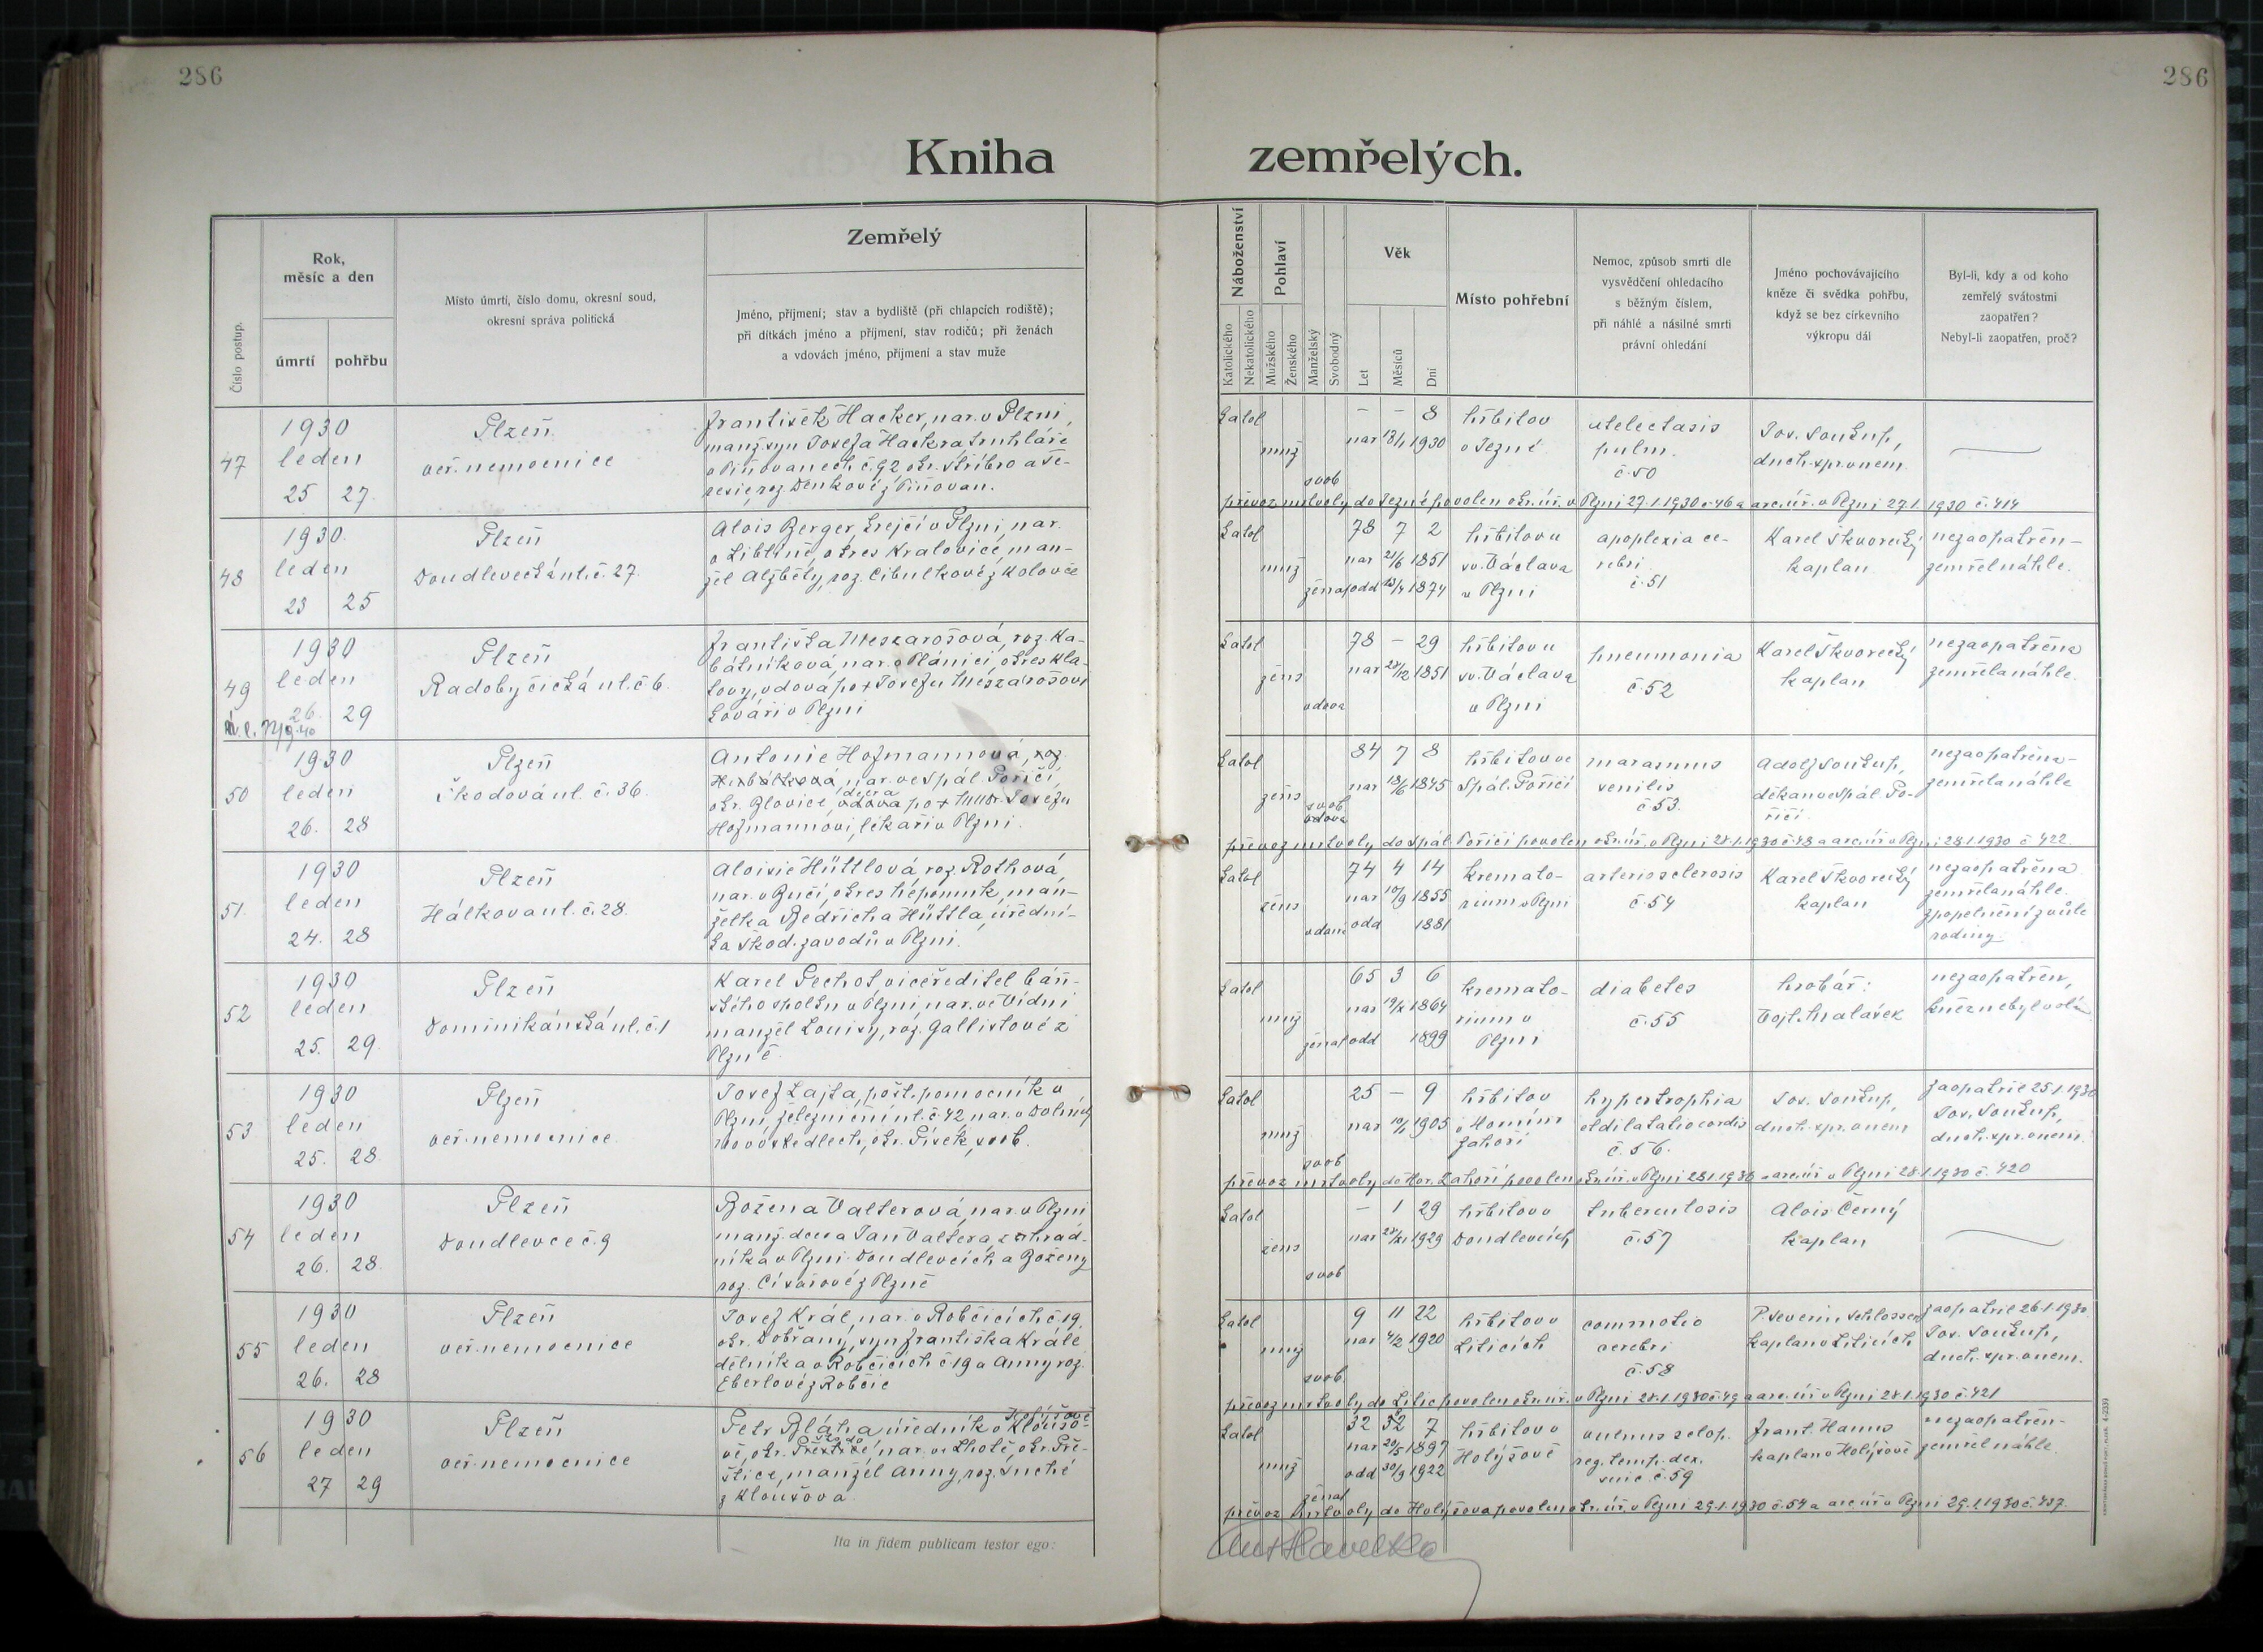 286
286
Kniha zemřelých.
Číslo postup.
Rok,
měsíc a den
úmrtí
pohřbu
Místo úmrtí, číslo domu, okresní soud,
okresní správa politická
Zemřelý
Jméno, příjmení; stav a bydliště (při chlapcích rodiště);
při dítkách jméno a příjmení, stav rodičů; při ženách
a vdovách jméno, příjmení a stav muže
Náboženství
Katolického
Nekatolického
Pohlaví
Mužského
Ženského
Manželský
Svobodný
Věk
Let
Měsíců
Dní
Místo pohřební
Nemoc, způsob smrti dle
vysvědčení ohledacího
s běžným číslem,
při náhlé a násilné smrti
právní ohledání
Jméno pochovávajícího
kněze či svědka pohřbu,
když se bez církevního
výkropu dál
Byl-li, kdy a od koho
zemřelý svátostmi
zaopatřen?
Nebyl-li zaopatřen, proč?
47
1930
leden
25 27.
Plzeň
veř. nemocnice
František Hacker, nar. v Plzni,
manž. syn Josefa Hackra truhláře
v Piňovanech č. 92 okr. Stříbro a Te-
resie, roz. Denkové z Piňovan.
katol
muž
svob
– – 8
nar 18/1 1930
hřbitov
v Tezné
atelectasis
pulm.
č. 50
Jos. Soukup,
duch. spr. v nem.
převoz mrtvoly do Tezné povolen okr. úř. v Plzni 27.1.1930 č 46 a arc. úř. v Plzni 27.1.1930 č. 414
48
1930.
leden
23 25
Plzeň
Doudlevecká ul. č. 27.
Alois Berger, krejčí v Plzni, nar.
v Liblíně, okres Kralovice, man-
žel Alžběty, roz. Cibulkové z Kolovče
katol
muž
ženat
78 7 2
nar 21/6 1851
odd 1874
hřbitov u
sv. Václava
v Plzni
apoplexia ce-
rebri
č. 51
Karel Škvorecký
kaplan
nezaopatřen –
zemřel náhle.
49
1930
leden
26. 29
Plzeň
Radobyčická ul. č. 6.
Františka Meszarošová, roz. Ka-
bátníková, nar. v Plánici, okres Kla-
tovy, vdova po + Josefu Meszarosovi
kováři v Plzni
katol
žens
vdova
78 – 29
nar 28/12 1851
hřbitov u
sv. Václava
v Plzni
pneumonia
č. 52
Karel Škvorecký
kaplan
nezaopatřena
zemřela náhle.
50
1930
leden
26. 28
Plzeň
Škodova ul. č. 36.
Antonie Hofmannová, roz.
nar. ve Spál. Poříčí,
dcera
okr. Blovice, vdova po + MUDr. Josefu
Hofmannovi, lékaři v Plzni.
katol
žens
svob
vdova
84 7 8
nar 18/6 1845
hřbitov ve
Spál. Poříčí
marasmus
senilis
č. 53.
Adolf Soukup,
děkan ve Spál. Po-
říčí
nezaopatřena –
zemřela náhle
převoz mrtvoly do Spál. Poříčí povolen okr. úř. v Plzni 28.1.1930 č. 48 a arc. úř. v Plzni 28.1.1930 č 422
51.
1930
leden
24. 28
Plzeň
Hálkova ul. č. 28.
Aloisie Hüttlová, roz. Rothová,
nar. v Bučí, okres Nepomuk, man-
želka Bedřicha Hüttla, úřední-
ka Škod. závodů v Plzni.
katol
žens
vdaná
74 4 14
nar 10/9 1855
odd 1881
kremato-
rium v Plzni
arteriosclerosis
č. 54
Karel Škvorecký
kaplan
nezaopatřena
zemřela náhle.
zpopelnění z vůle
rodiny.
52
1930
leden
25. 29.
Plzeň
Dominikánská ul. č. 1
Karel Pechot, viceředitel báň-
ského spolku v Plzni, nar. ve Vídni
manžel Louisy, roz. Gallistové z
Plzně.
katol
muž
ženat
65 3 6
nar 19/X 1864
odd 1899
kremato-
rium v
Plzni
diabetes
č. 55
hrobář:
Vojt. Malášek
nezaopatřen,
kněz nebyl volán
53
1930
leden
25. 28
Plzeň
veř. nemocnice.
Josef Lajta, pošt. pomocník v
Plzni, železniční ul. č. 42, nar. v Dolních
Novosedlech, okr. Písek, svob.
katol
muž
svob
25 – 9
nar 1905
hřbitov
v Horním
Záhoří
hypertrophia
et dilatatio cordis
č. 56.
Jos. Soukup,
duch. spr. v nem
zaopatřil 25.1.1930
Jos. Soukup,
duch. spr. v nem.
převoz mrtvoly do Hor. Záhoří povolen okr. úř. v Plzni 28.1.1930 a arc. úř. v Plzni 28.1.1930 č. 420
54
1930
leden
26. 28.
Plzeň
Doudlevce č. 9
Božena Valterová, nar. v Plzni
manž. dcera Jana Valtera, zahrad-
níka v Plzni-Doudlevcích a Boženy
roz. Císařové z Plzně
katol
žens
svob
– 1 29
nar 28/XI 1929
hřbitov v
Doudlevcích
tuberculosis
č. 57
Alois Černý
kaplan
55
1930
leden
26. 28
Plzeň
veř. nemocnice
Josef Král, nar. v Robčicích č. 19,
okr. Dobřany, syn Františka Krále
dělníka v Robčicích č 19 a Anny roz.
Eberlové z Robčic
katol
muž
svob.
9 11 22
nar 4/2 1920
hřbitov v
Liticích
commotio
cerebri
č. 58
P. Severin Schlosser
kaplan v Liticích
zaopatřil 26.1.1930
Jos. Soukup,
duch. spr. v nem.
převoz mrtvoly do Litic povolen okr. úř. v Plzni 28.1.1930 č. 49 a arc. úř v Plzni 28.1.1930 č. 421
56
1930
leden
27 29
Plzeň
veř. nemocnice
Petr Bláha, úředník v Kloušo-
vě, okr. nar. ve Lhotě, okr. Pře-
štice, manžel Anny, roz. Suché
z Kloušova.
katol
muž
ženat
32 7
nar 20/5 1897
odd 30/9 1922
hřbitov v
Holýšově
vulnus sclop.
reg. temp. dex.
suic. č. 59
Frant. Hanus
kaplan v Holýšově
nezaopatřen –
zemřel náhle.
převoz mrtvoly do Holýšova povolen okr. úř. v Plzni 29.1.1930 č. 54 a arc. úř v Plzni 29.1.1930 č. 437.
Ita in fidem publicam testor ego:
Ant Havelka